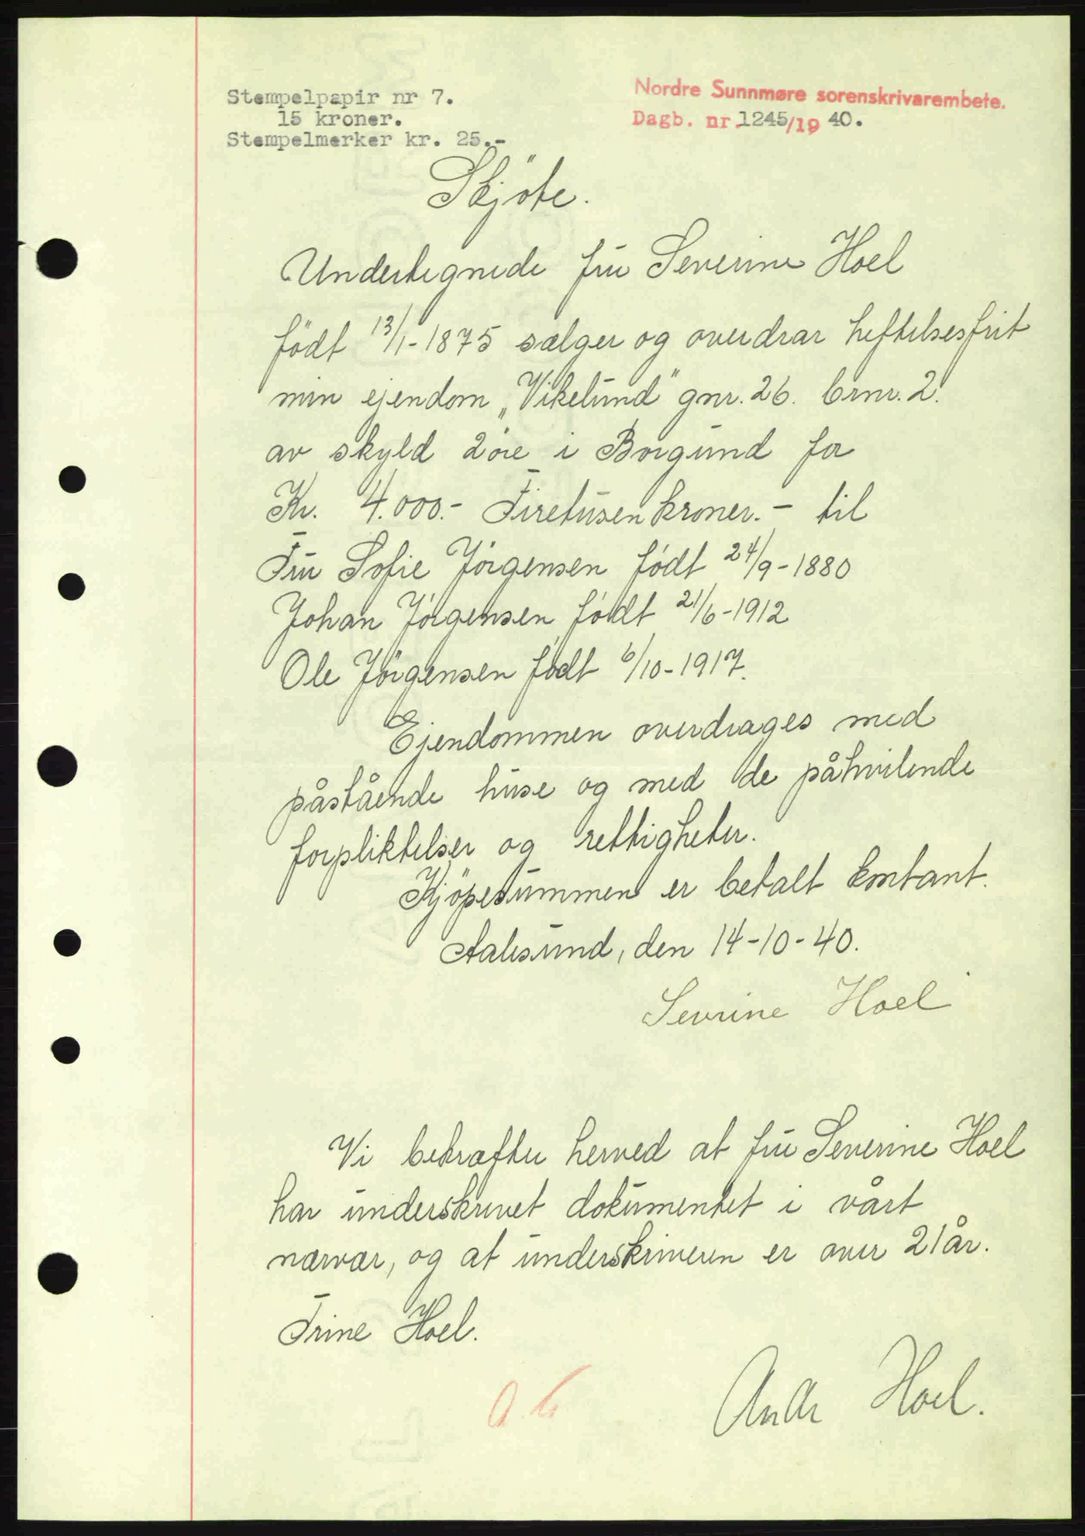 Stempelpapir nr 7.
15 kroner.
Stempelmerker kr. 25.-
Nordre Sunnmøre sorenskrivarembete.
Dagb. nr. 1245/19 40.
Skjöte.
Undertegnede fru Severine Hoel
födt 13/1-1875 sælger og overdrar heftelsesfrit
min ejendom „Vikelund" gnr. 26. brnr. 2.
av skyld 2 öre i Borgund for
Kr. 4.000.- Firetusen kroner. - til
Fru Sofie Jörgensen födt 24/9-1880
Johan Jörgensen födt 21/6-1912
Ole Jörgensen födt 6/10-1917.
Ejendommen overdrages med
påstående huse og med de påhvilende
forpliktelser og rettigheter.
Kjöpesummen er betalt kontant.
Aalesund, den 14-10-40.
Sevrine Hoel
Vi bekræfter herved at fru Severine Hoel
har underskrevet dokumentet i vårt
nærvær, og at underskriveren er over 21 år.
Trine Hoel.
Andr Hoel.